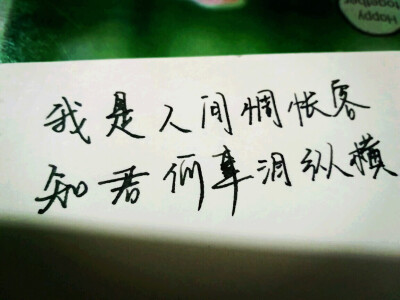 Happy
together
我是人间惆怅客
知君何事泪纵横